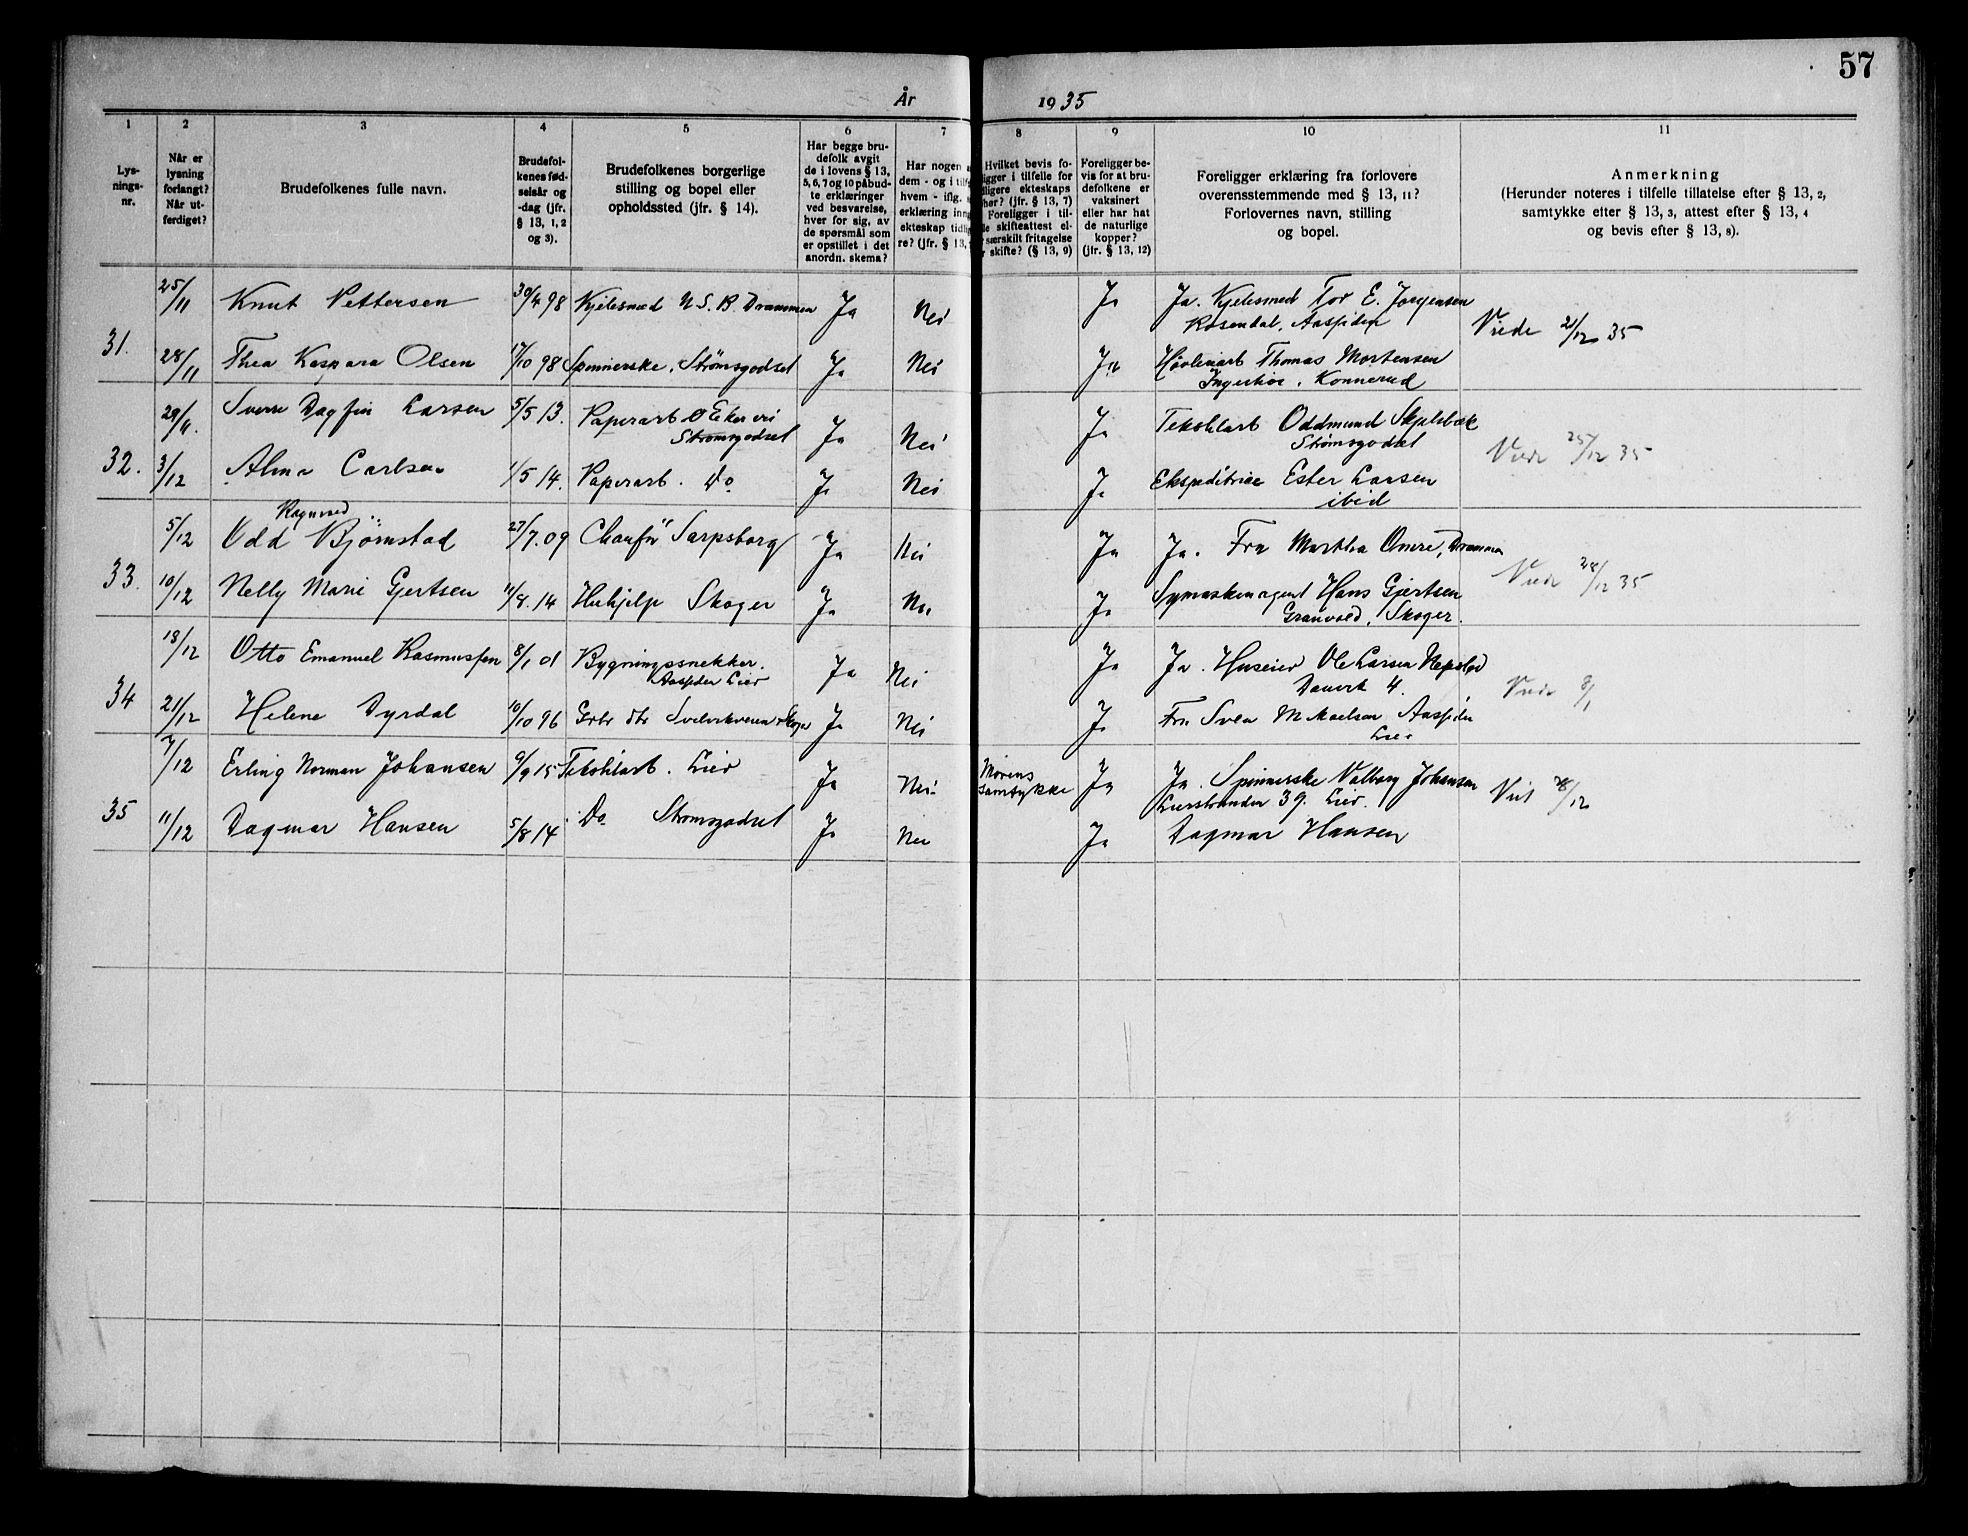 57
År 1935
1 2 3 4 5 6 7 8 9 10 11
Lys-
nings-
nr.
Når er
lysning
forlangt?
Når ut-
ferdiget?
Brudefolkenes fulle navn.
Brudefol-
kenes fød-
selsår og
-dag (jfr.
§ 13, 1, 2
og 3).
Brudefolkenes borgerlige
stilling og bopel eller
opholdssted (jfr. § 14).
Har begge bru-
defolk avgit
de i lovens § 13,
5, 6, 7 og 10 påbud-
te erklæringer
ved besvarelse,
hver for sig, av
de spørsmål som
er opstillet i det
anordn. skema?
Har nogen
dem - og i
hvem - iflg.
erklæring inn
ekteskap tidlig
re? (jfr. § 13,
Hvilket bevis fo-
ligger i tilfelle for
dligere ekteskaps
hør? (jfr. § 13, 7)
Foreligger i til-
le skifteattest el-
særskilt fritagelse
skifte? (§ 13, 9)
Foreligger be-
vis for at bru-
defolkene er
vaksinert
eller har hat
de naturlige
kopper?
(jfr. § 13, 12)
Foreligger erklæring fra forlovere
overensstemmende med § 13, 11?
Forlovernes navn, stilling
og bopel.
Anmerkning
(Herunder noteres i tilfelle tillatelse efter § 13, 2,
samtykke efter § 13, 3, attest efter § 13, 4
og bevis efter § 13, 8).
31.
25/11 Knut Pettersen 30/4 98 Kjelesmed N.S.B. Drammen Ja Nei Ja Ja. Kjelesmed Tor E. Jorgensen
Rosendal, Aassiden
Viede 2/12 35
28/11 Thea Kaspara Olsen 17/10 98 Spinnerske, Strømsgodset Ja Nei Ja Høvleriarb Thomas Mortensen
Konnerud
32.
29/11. Sverre Dagfin Larsen 5/5 13. Papirarb
Strømsgodset Ja Nei Ja Tekstilarb Oddmund
Strømsgodset
Viede 25/12 35
3/12 Alma Carlsen 1/5 14. Papirarb. Do Ja Nei Ja Ekspeditrice Ester Larsen
ibid
33.
Ragnvad
5/12 Odd Björnstad 27/7.09 Chaufør Sarpsborg Ja Nei Ja Ja. Fru Martha Omre, Drammen
Viede 28/12 35
10/12 Nelly Marie Gjertsen 11/8. 14 Hushjelp Skoger Ja Nei Ja Symaskinagent Hans Gjertsen
Granvold, Skoger.
34
18/12 Otto Emanuel Rasmussen 8/1 01 Bygningssnekker.
Aassiden Lier Ja Nei Ja Ja. Huseier Ole Larsen
4.
Viede 8/1
21/12 Helene Dyrdal 10/10 96 Skoger Ja Nei Ja Fru Svea Mikaelsen, Aassiden
Lier
35
7/12 Erling Norman Johansen 9/9 15 Tekstilarb. Lier Ja Nei Morens
samtykke Ja Ja. Spinnerske Valborg Johansen
Lierstranden 39. Lier.
Viet 28/12
11/12 Dagmar Hansen 5/8 14 Do Strømsgodset Ja Nei Ja Dagmar Hansen